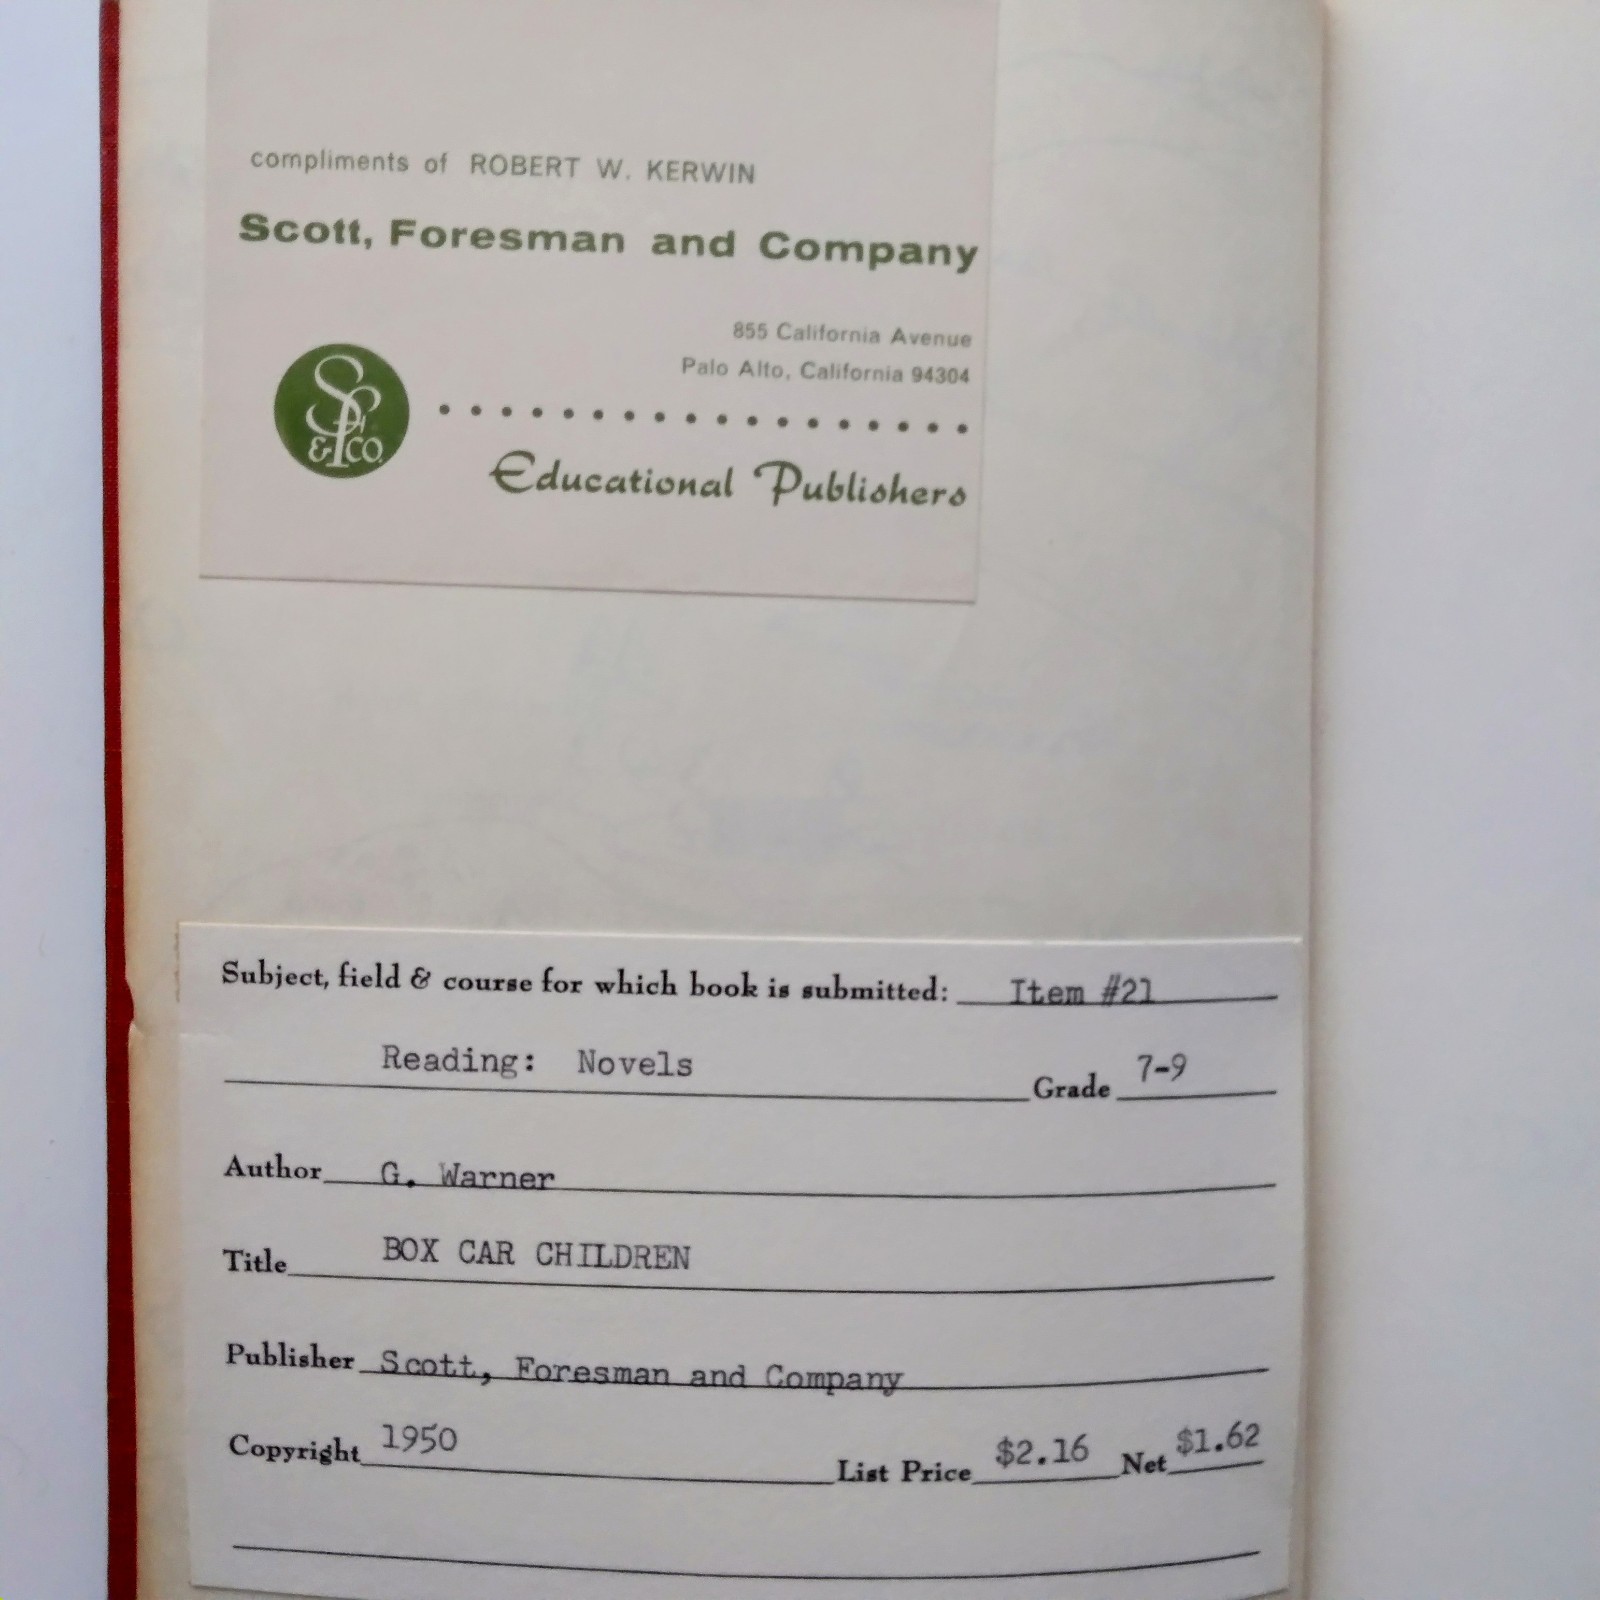 compliments of ROBERT W. KERWIN
Scott, Foresman and Company
855 California Avenue
Palo Alto, California 94304
SF
& CO.
Educational Publishers
Subject, field & course for which book is submitted: Item #21
Reading: Novels Grade 7-9
Author G. Warner
Title BOX CAR CHILDREN
Publisher Scott, Foresman and Company
Copyright 1950 List Price $2.16 Net $1.62